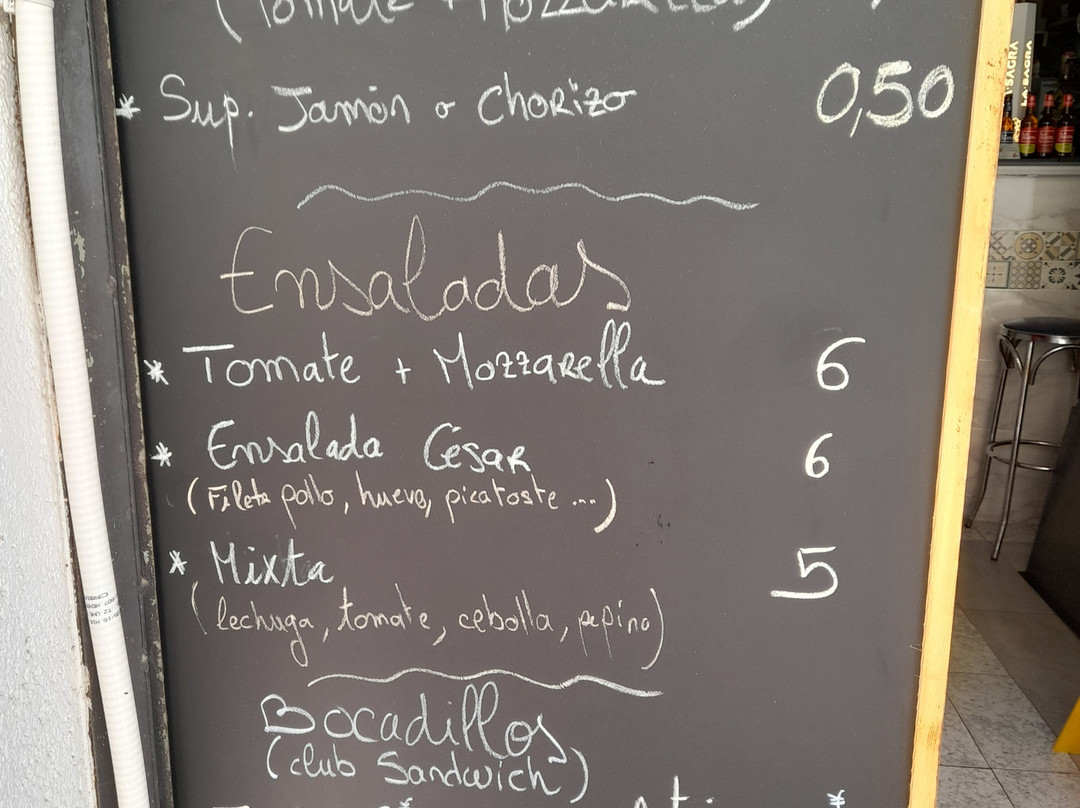 (Tomate + Mozzarella)
* Sup. Jamón o Chorizo 0,50
Ensaladas
* Tomate + Mozzarella 6
* Ensalada César 6
(Filete pollo, huevo, picatoste ...)
* Mixta 5
(lechuga, tomate, cebolla, pepino)
Bocadillos
(club Sandwich)
LA SAGRA